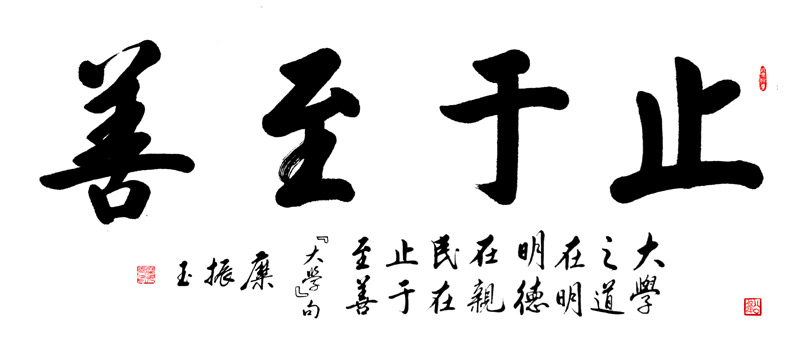 止于至善
大學
之道
在明
明德
在親
民在
止于
至善
『大學』句
糜振玉